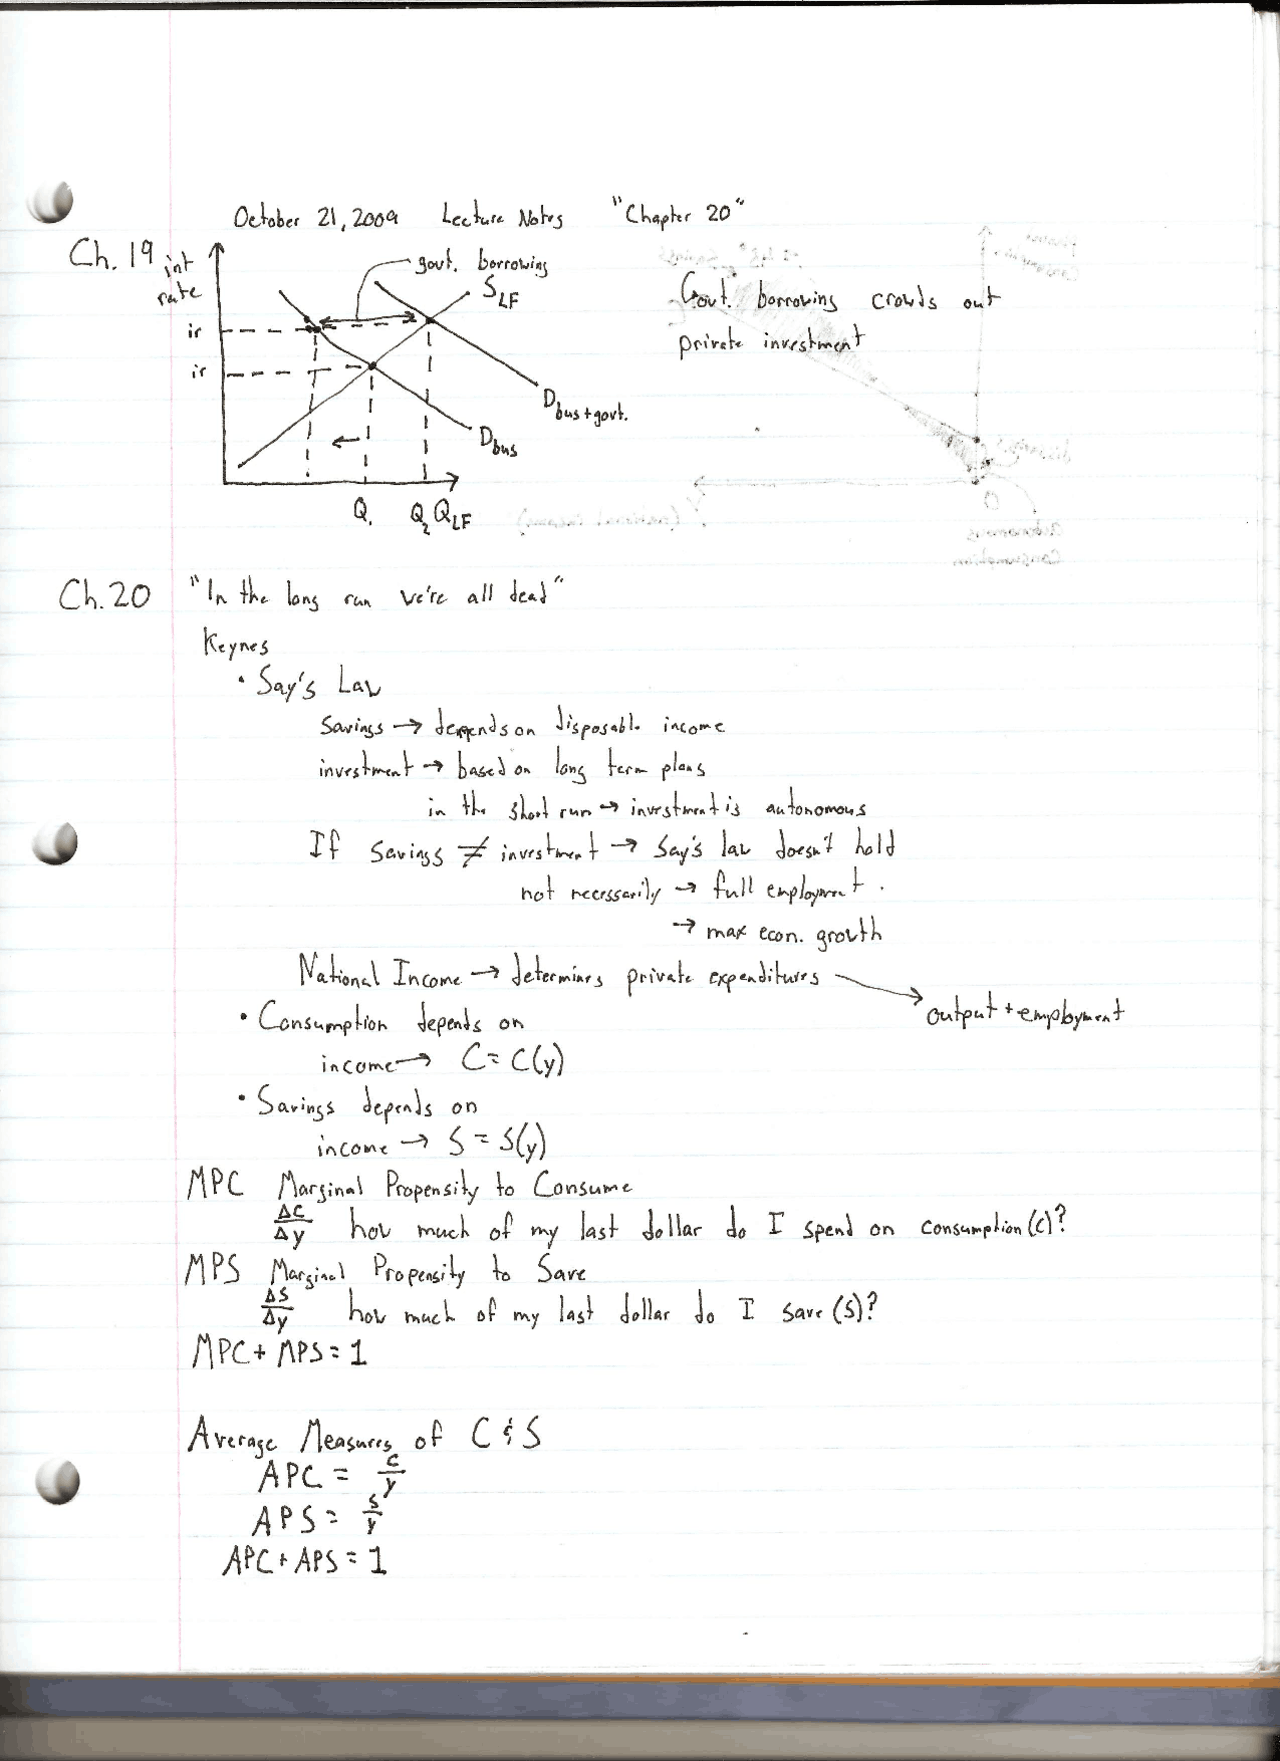 October 21, 2009 Lecture Notes "Chapter 20"
Ch. 19
int
rate
ir
ir
govt. borrowing
S_LF
D_bus+govt.
D_bus
Q_1 Q_2 Q_LF
Govt. borrowing crowds out
private investment
Ch. 20 "In the long run we're all dead"
Keynes
• Say's Law
Savings → depends on disposable income
investment → based on long term plans
in the short run → investment is autonomous
If Savings ≠ investment → Say's law doesn't hold
not necessarily → full employment.
→ max econ. growth
National Income → determines private expenditures → output + employment
• Consumption depends on
income → C = C(y)
• Savings depends on
income → S = S(y)
MPC Marginal Propensity to Consume
ΔC/Δy how much of my last dollar do I spend on consumption (c)?
MPS Marginal Propensity to Save
ΔS/Δy how much of my last dollar do I save (s)?
MPC + MPS = 1
Average Measures of C & S
APC = C/y
APS = S/y
APC + APS = 1